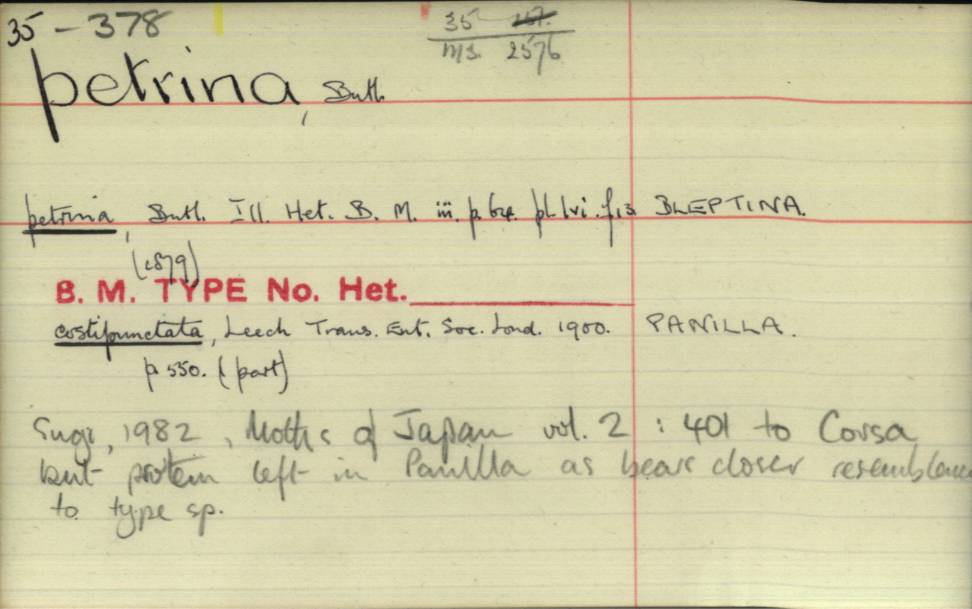 35 - 378
35 257.
MS. 2576
petrina, Butl.
petrina, Butl. Ill. Het. B. M. iii. p. 64. pl. lvi. f. 13. BLEPTINA.
(1879)
B. M. TYPE No. Het.
costipunctata, Leech Trans. Ent. Soc. Lond. 1900. PANILLA.
p 550. (part)
Sugi, 1982, Moths of Japan vol. 2 : 401 to Corsa,
but protem left in Panilla as bears closer resemblance
to type sp.